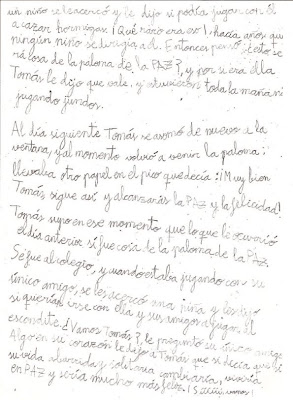 un niño se le acercó y le dijo si podía jugar con él
a cazar hormigas. ¡Qué raro era eso! hacía años que
ningún niño se dirigía a él. Entonces pensó: ¿esto se
rá cosa de la paloma de la PAZ?, y por si era ella
Tomás le dijo que vale, y estuvieron toda la mañani
jugando jundos.
Al día siguiente Tomás se asomó de nuevo a la
ventana, y al momento volvió a venir la paloma:
llevaba otro papel en el pico que decía: ¡Muy bien
Tomás sigue así y alcanzarás la PAZ y la felicidad!
Tomás supo en ese momento que lo que le ocurrió
el día anterior si fue cosa de la paloma de la PAZ
Se fue al colegio, y cuando estaba jugando con su
único amigo, se les acercó una niña y les dijo
si querían irse con ella y sus amigos a jugar al
escondite. ¿Vamos Tomás?, le preguntó su único amigo
Algo en su corazón le dijo a Tomás que si decía que si
su vida aburrida y solitaria cambiaría, viviría
en PAZ y sería mucho más feliz. ¡Siiiii, vamos!